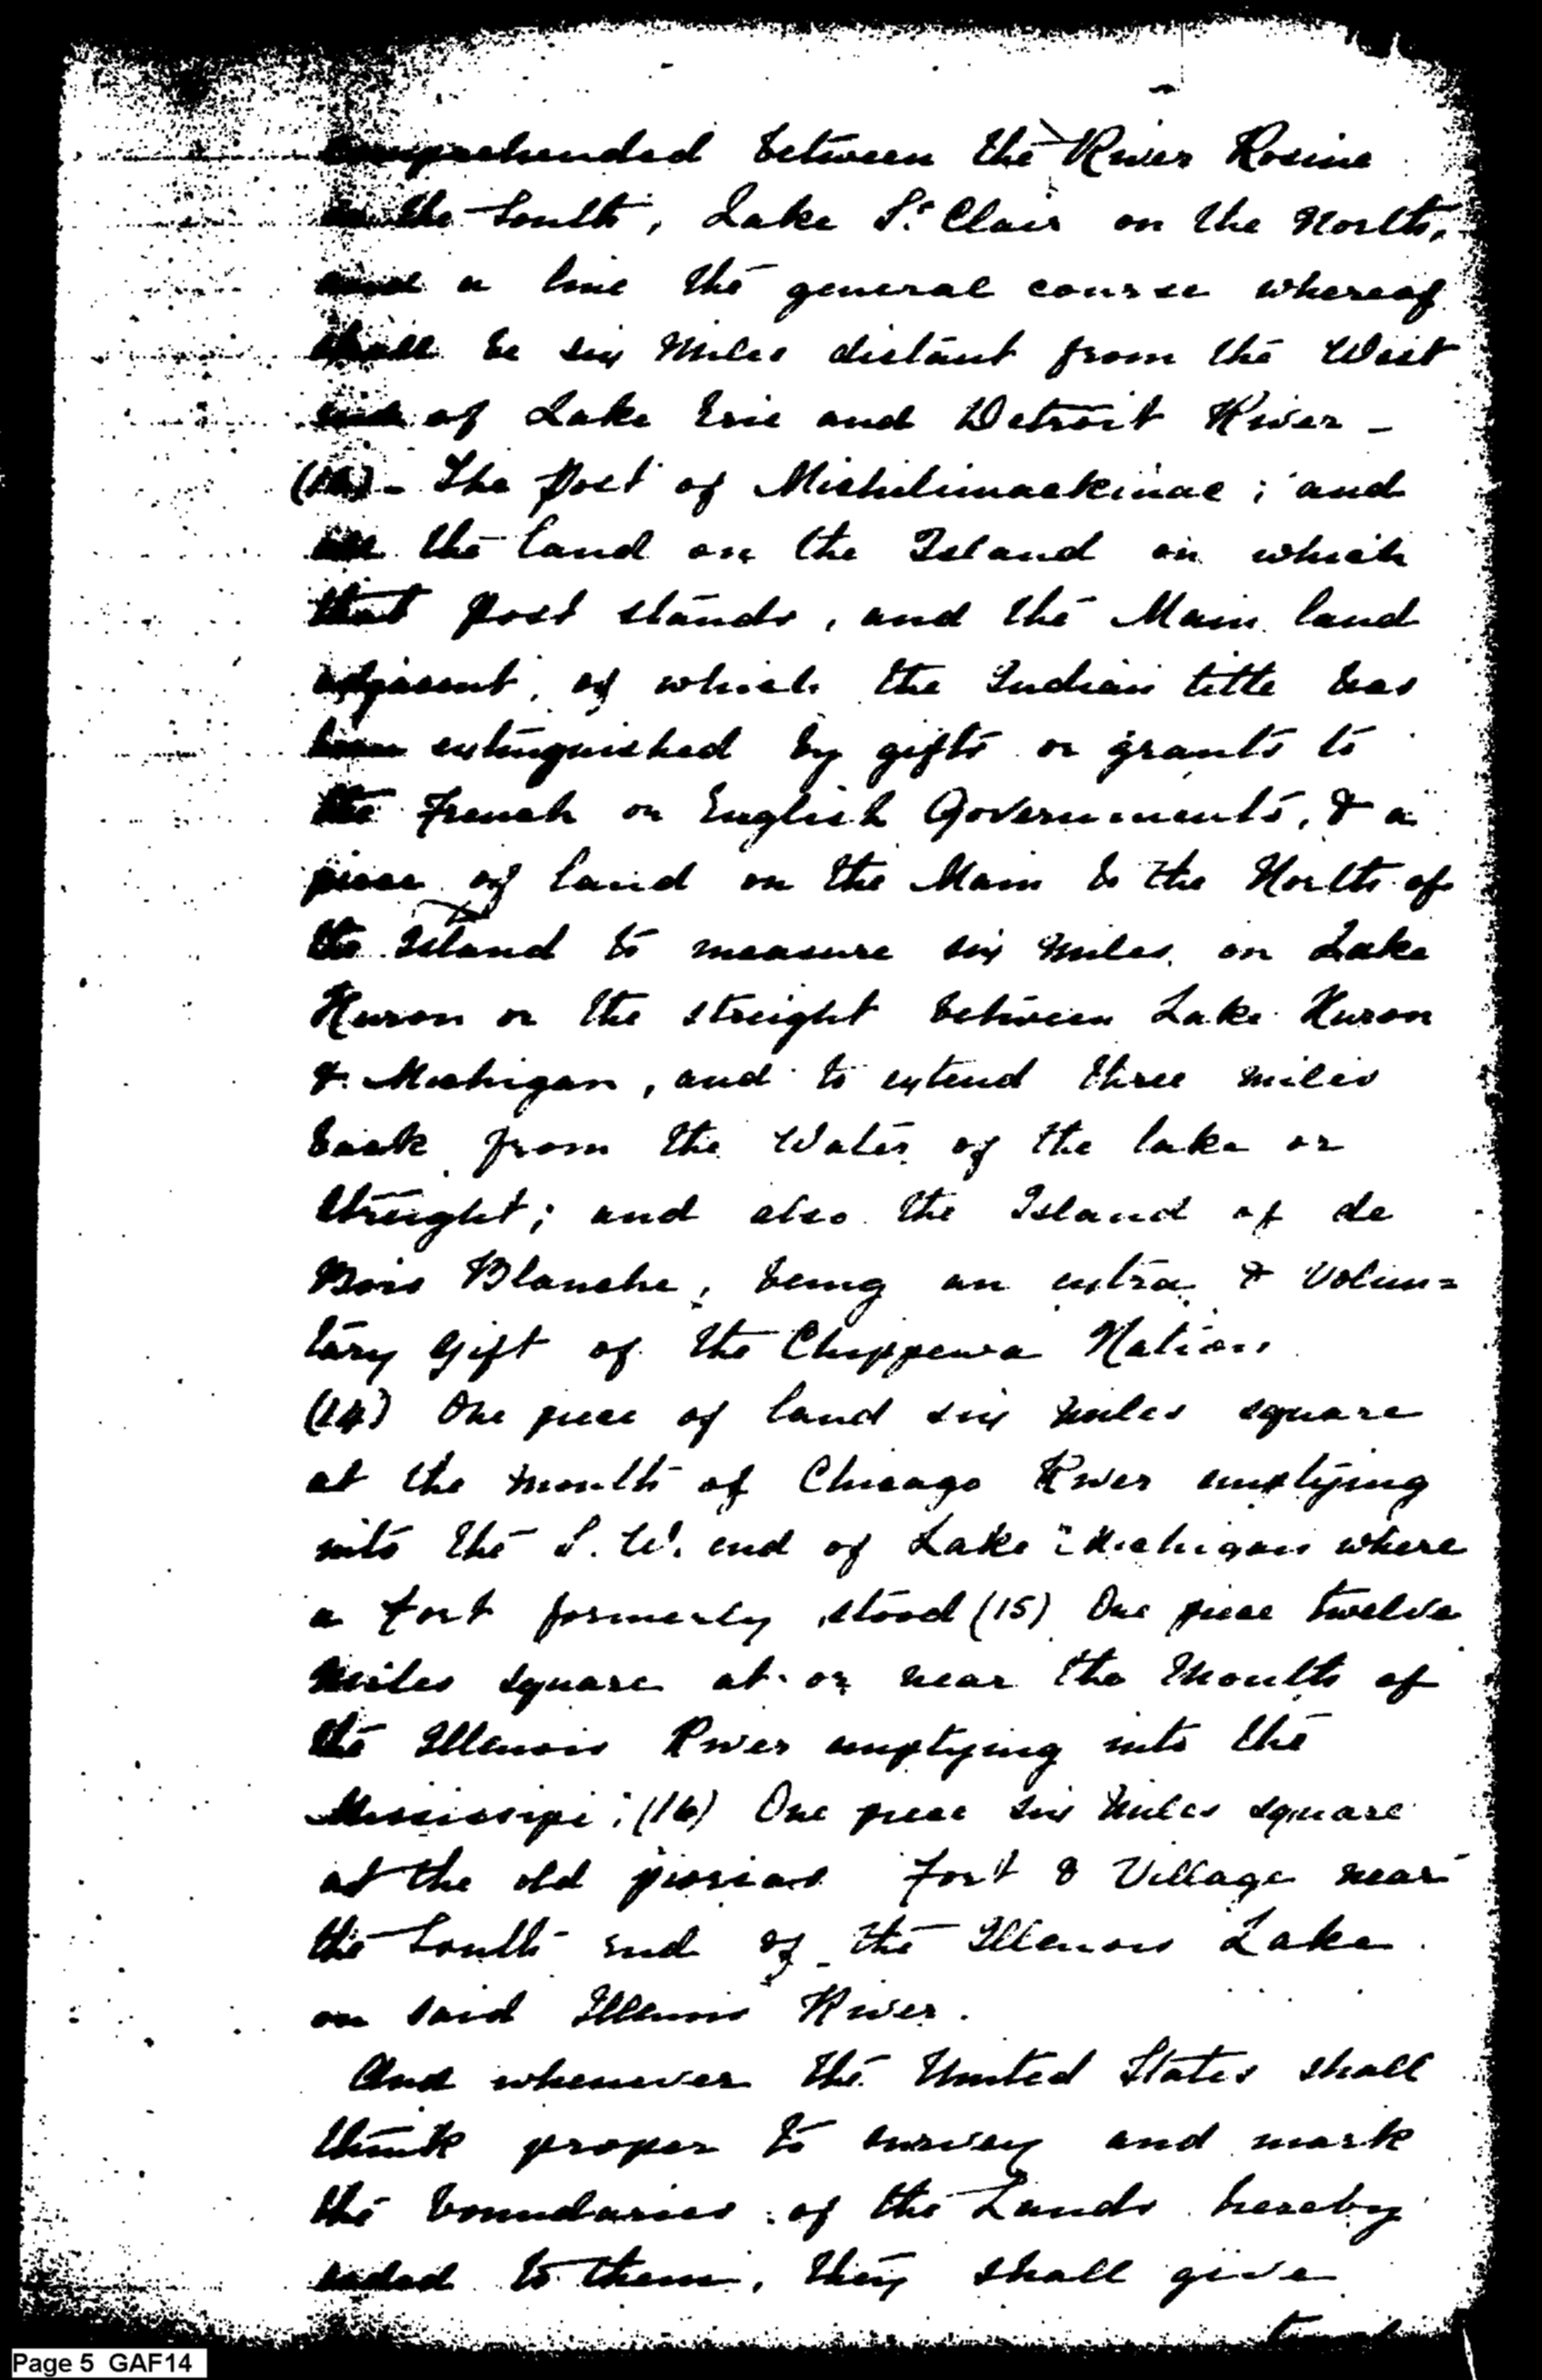 comprehended between the River Rosine
on the South, Lake St. Clair on the North,
and a line the general course whereof
shall be six Miles distant from the West
end of Lake Erie and Detroit River -
- The Post of Michilimackinac ; and
all the land on the Island on which
that post stands, and the Main land
adjacent, of which the Indian title has
been extinguished by gifts or grants to
the French or English Governments, & a
piece of land on the Main to the North of
the Island to measure six miles on Lake
Huron or the streight between Lake Huron
& Michigan, and to extend three miles
back from the Water of the lake or
streight; and also the Island of de
Bois Blanche, being an extra & Volun=
tary gift of the Chippewa Nation
(14) One piece of land six miles square
at the mouth of Chicago River emptying
into the S. W. end of Lake Michigan where
a fort formerly stood (15) One piece twelve
miles square at or near the Mouth of
the Illenois River emptying into the
Mississipi; (16) One piece six miles square
at the old fort & Village near
the South end of the Illenois Lake
on said Illenois River.
And whenever the United States shall
think proper to survey and mark
the boundaries of the Lands hereby
ceded to them, they shall give
Page 5 GAF14